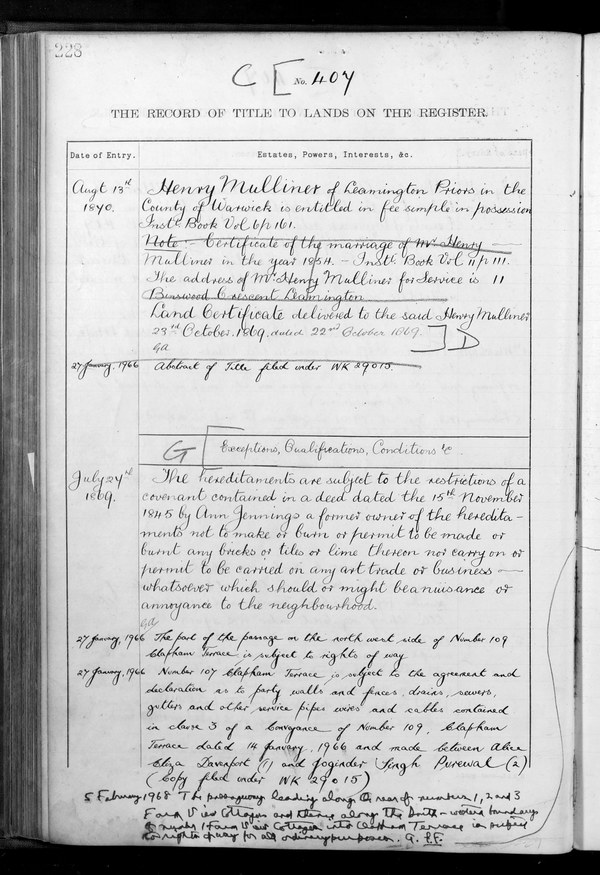 228
C E No. 407
THE RECORD OF TITLE TO LANDS ON THE REGISTER.
Date of Entry.
Estates, Powers, Interests, &c.
Augt 13th 1870.
Henry Mulliner of Leamington Priors in the
County of Warwick is entitled in fee simple in possession
Inst. Book Vol 6 p 161.
Note:- Certificate of the marriage of Mr Henry
Mulliner in the year 1854. - Inst. Book Vol 11 p 111.
The address of Mr Henry Mulliner for Service is 11
Binswood Crescent Leamington
Land Certificate delivered to the said Henry Mulliner
23rd October. 1869. dated 22nd October 1869. D
GA
27 January, 1966 Abstract of Title filed under WK 29015.
G Exceptions, Qualifications, Conditions &c
July 27th 1869.
The hereditaments are subject to the restrictions of a
covenant contained in a deed dated the 15th November
1845 by Ann Jennings a former owner of the heredita-
ments not to make or burn or permit to be made or
burnt any bricks or tiles or lime thereon nor carry on or
permit to be carried on any art trade or business
whatsoever which should or might be a nuisance or
annoyance to the neighbourhood.
GA
27 January, 1966 The part of the passage on the north west side of Number 109
Clapham Terrace is subject to rights of way
27 January, 1966 Number 107 Clapham Terrace is subject to the agreement and
declaration as to party walls and fences, drains, sewers,
gutters and other service pipes wires and cables contained
in clause 3 of a Conveyance of Number 109, Clapham
Terrace dated 14 January, 1966 and made between Alice
Eliza Davenport (1) and Joginder Singh Purewal (2)
(Copy filed under WK 29015)
5 February 1968 The passageway leading along the rear of numbers 1, 2 and 3
Farm View Cottages and thence along the South-western boundary
of number 1 Farm View Cottages into Clapham Terrace is subject
to rights of way for all ordinary purposes.